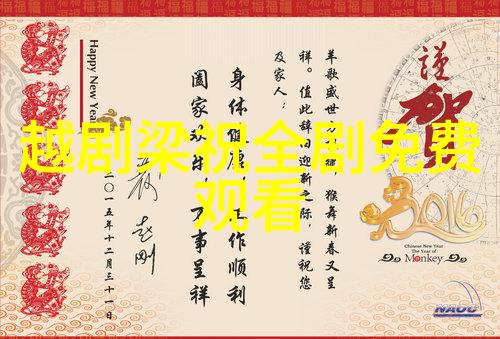 越剧梁祝全剧免费
观看
谨
贺
羊歌盛世方 猴舞新春又呈
祥。值此辞旧迎新之际，谨祝您
及家人：
身体健康，工作顺利
阖家欢乐，万事呈祥
赵刚
二〇一五年十二月三十一日
Happy New Year
2016
Chinese New Year
The Year of
Monkey
NAOC